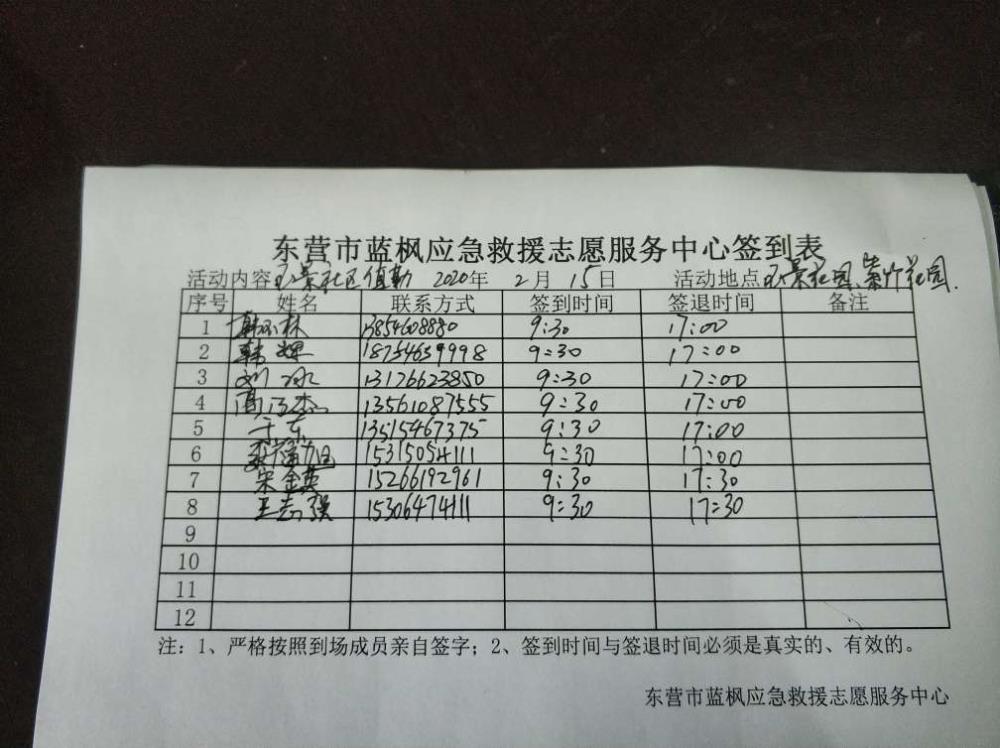 东营市蓝枫应急救援志愿服务中心签到表
活动内容 景社区值勤 2020年 2月 15日 活动地点 景花园、紫竹花园.
序号 姓名 联系方式 签到时间 签退时间 备注
1 韩 林 13854608880 9:30 17:00
2 韩辉 18754659998 9:30 17:00
3 刘冰 13176623850 9:30 17:00
4 杰 13561087555 9:30 17:00
5 于东 13515467375 9:30 17:00
6 旭 15315054111 9:30 17:00
7 宋金英 15266192961 9:30 17:30
8 王志强 15306474111 9:30 17:30
9
10
11
12
注：1、严格按照到场成员亲自签字；2、签到时间与签退时间必须是真实的、有效的。
东营市蓝枫应急救援志愿服务中心